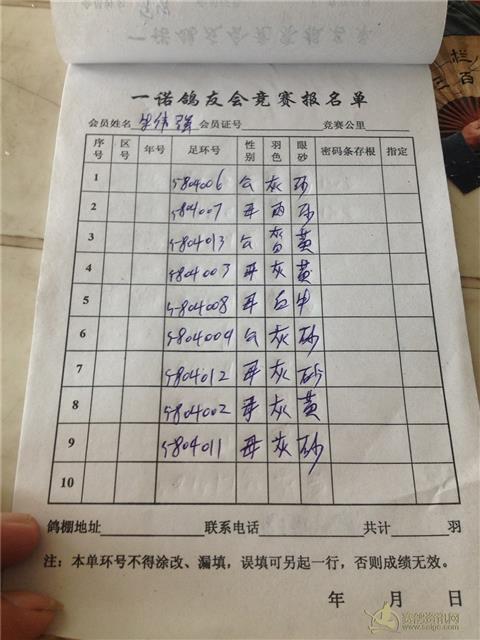 一诺鸽友会竞赛报名单
会员姓名 朱伟强 会员证号 竞赛公里
序号 区号 年号 足环号 性别 羽色 眼砂 密码条存根 指定
1 5804006 公 灰 砂
2 5804007 母 雨 砂
3 5804013 公 黄
4 5804003 母 灰 黄
5 5804008 母 白 牛
6 5804009 公 灰 砂
7 5804012 母 灰 砂
8 5804002 母 灰 黄
9 5804011 母 灰 砂
10
鸽棚地址 联系电话 共计 羽
注：本单环号不得涂改、漏填，误填可另起一行，否则成绩无效。
年 月 日
赛鸽资讯网
www.saige.com